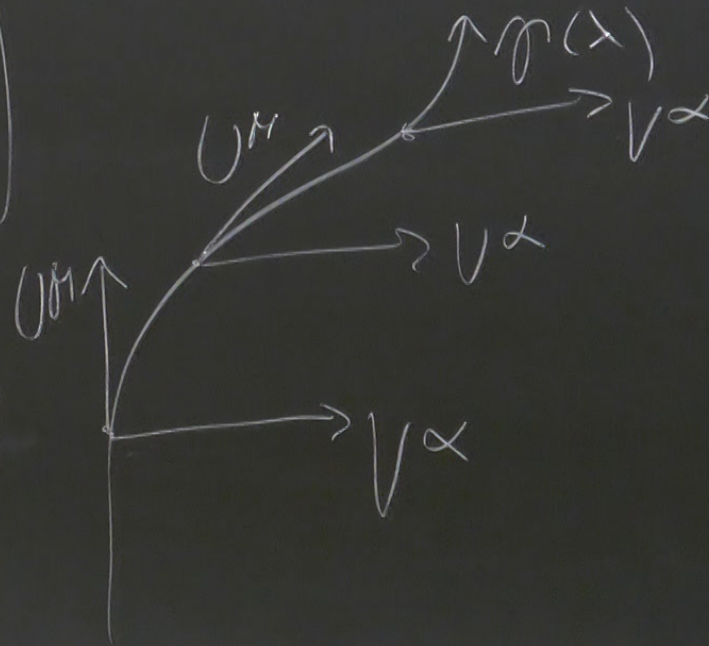 γ(λ)
V^α
U^μ
V^α
U^μ
V^α